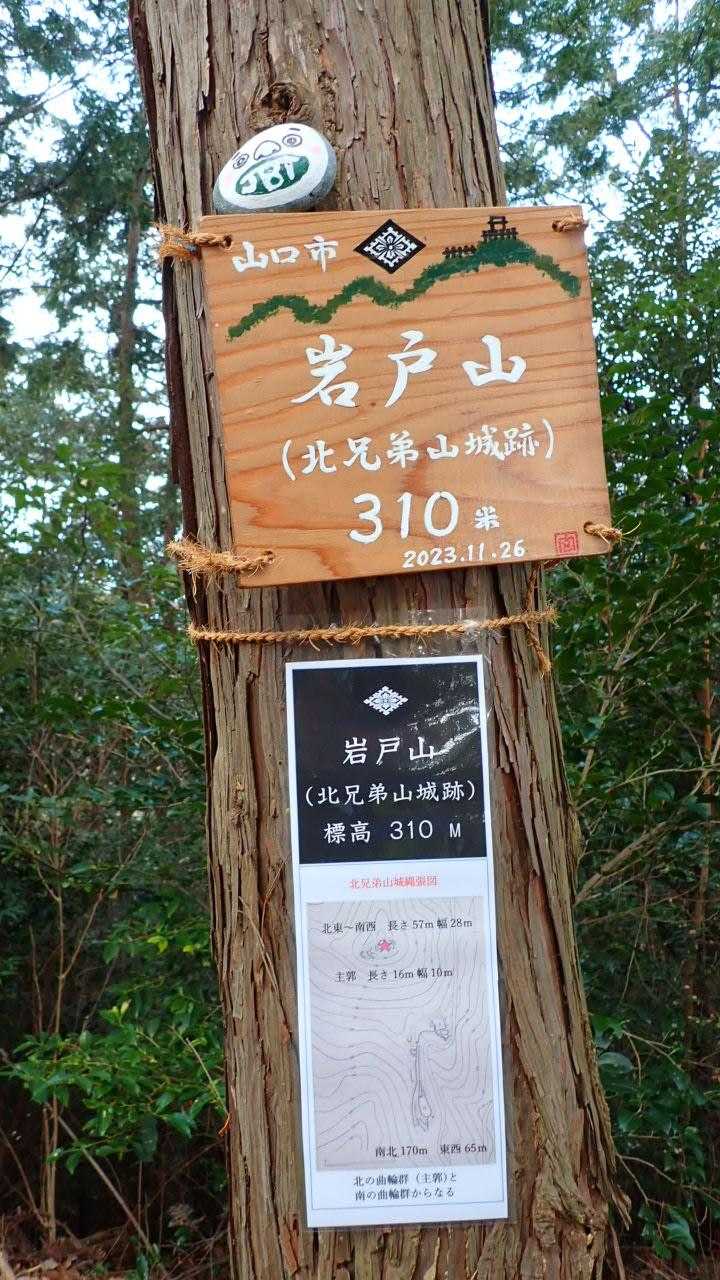 JBT
山口市
岩戸山
(北兄弟山城跡)
310米
2023.11.26
岩戸山
(北兄弟山城跡)
標高 310 M
北兄弟山城縄張図
北東～南西 長さ57m 幅28m
主郭 長さ16m 幅10m
南北170m 東西65m
北の曲輪群（主郭)と
南の曲輪群からなる